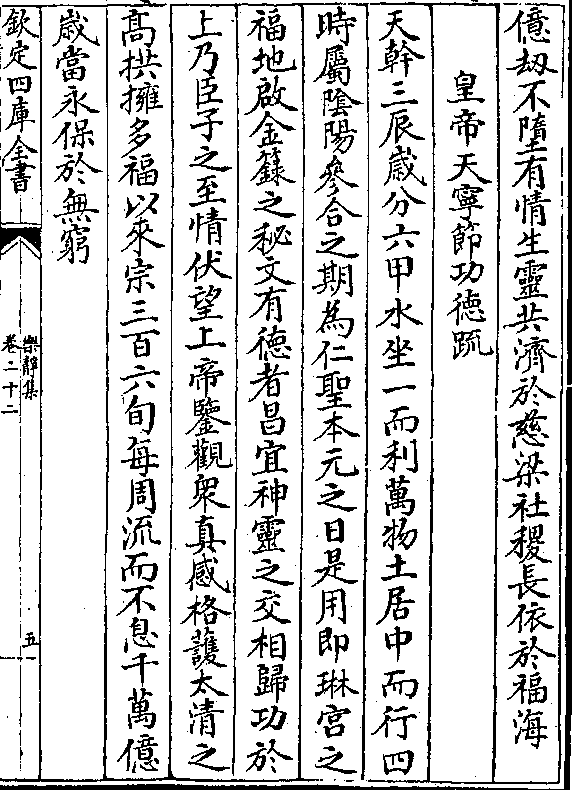 億劫不墮有情生靈共濟於慈梁社稷長依於福海
皇帝天寧節功徳疏
天幹三辰歳分六甲水坐一而利萬物土居中而行四
時屬陰陽參合之期為仁聖本元之日是用即琳宫之
福地啟金籙之秘文有徳者昌宜神靈之交相歸功於
上乃臣子之至情伏望上帝鑒觀衆真感格䕶太清之
髙拱擁多福以來宗三百六旬每周流而不息千萬億
歳當永保於無窮
欽定四庫全書
樂靜集
卷二十二
五